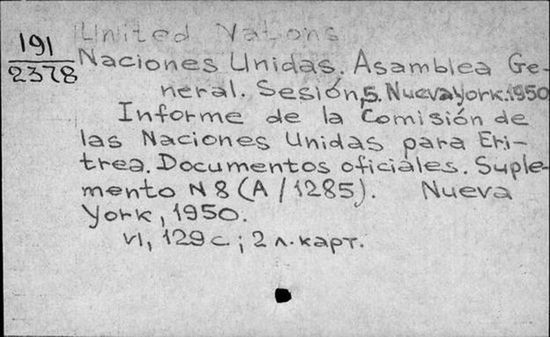 United Nations
191
2378
Naciones Unidas. Asamblea Ge-
neral. Sesión, 5. Nueva York. 1950
Informe de la Comisión de
las Naciones Unidas para Eri-
trea. Documentos oficiales. Suple-
mento N 8 (A/1285). Nueva
York, 1950.
VI, 129 с; 2 л. карт.